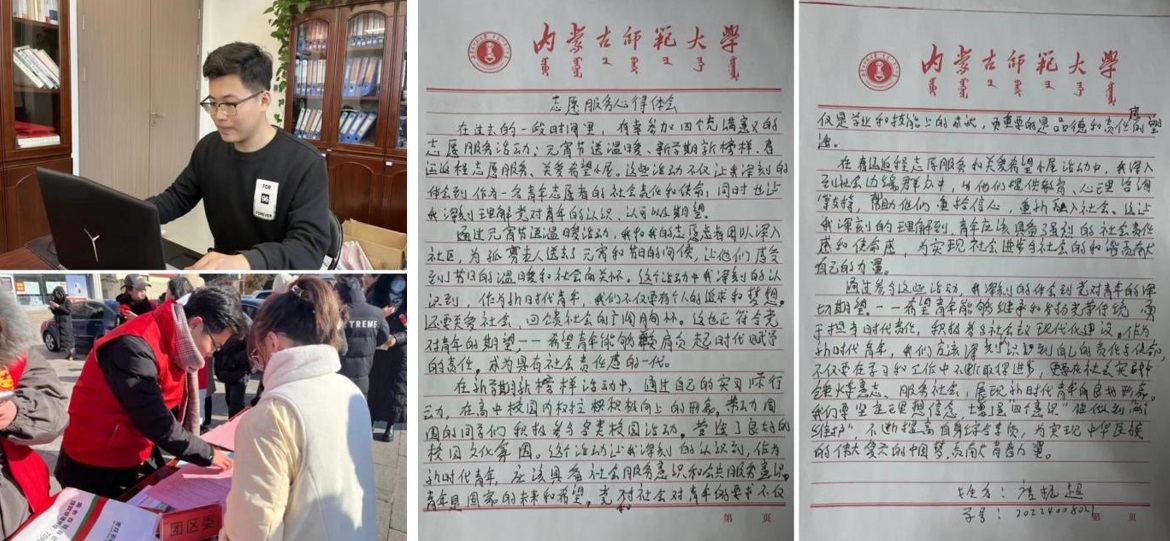 FOR
FOREVER
XTREME
团区委
内蒙古师范大学
志愿服务心得体会
在过去的一段时间里，有幸参加四个充满意义的
志愿服务活动：元宵节送温暖、新学期新榜样、春
运返程志愿服务、关爱希望小屋。这些活动不仅让我深刻的
体会到作为一名青年志愿者的社会责任和使命，同时也让
我深刻理解党对青年的认识、认可以及期望。
通过元宵节送温暖活动，我和我的志愿者团队深入
社区，为孤寡老人送去了元宵和节日的问候，让他们感受
到节日的温暖和社会的关怀。这个活动中我深刻的认
识到，作为新时代青年，我们不仅要有个人的追求和梦想，
还要关爱社会，回馈社会的广阔胸怀。这也正符合党
对青年的期望——希望青年能够肩负起时代赋予
的责任，成为具有社会责任感的一代。
在新学期新榜样活动中，通过自己的实习实际行
动，在高中校园内树立积极向上的形象，带动周
围的同学们积极参与各类校园活动，营造了良好的
校园文化氛围。这个活动让我深刻的认识到，作为
新时代青年，应该具备社会服务意识和公共服务意识，
青年是国家的未来和希望，党和社会对青年的要求不仅
第 页
内蒙古师范大学
仅是学业和技能上的求成，更重要的是品德和责任感的塑
造。
在春运返程志愿服务和关爱希望小屋活动中，我深入
到社会边缘群众中，为他们提供教育、心理咨询
等支持，帮助他们重拾信心，重新融入社会。这让
我深刻的理解到，青年应该具备强烈的社会责任
感和使命感，为实现社会进步与社会的和谐贡献
自己的力量。
通过参与这些活动，我深刻的体会到党对青年的深
切期望——希望青年能够继承和发扬光荣传统，勇
于担当时代责任，积极参与社会主义现代化建设。作为
新时代青年，我们应该深刻认识到自己的责任与使命，
不仅要在学习和工作中不断取得进步，更要在社会实践中
锤炼意志、服务社会，展现新时代青年的良好形象。
我们要坚定理想信念，增强“四个意识”，做到“两个
维护”，不断提高自身综合素质，为实现中华民族
的伟大复兴的中国梦贡献青春力量。
姓名：
学号：
第 页